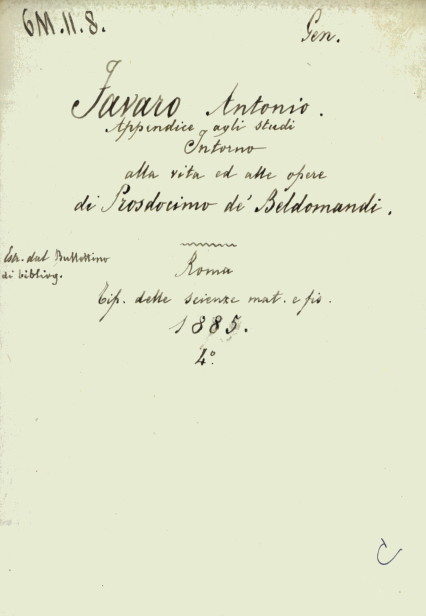 6M.11.8.
Gen.
Favaro Antonio.
Appendice agli studi
Intorno
alla vita ed alle opere
di Prosdocimo de' Beldomandi.
Estr. dal Bullettino
di bibliog.
Roma
Tip. delle scienze mat. e fis.
1885.
4°